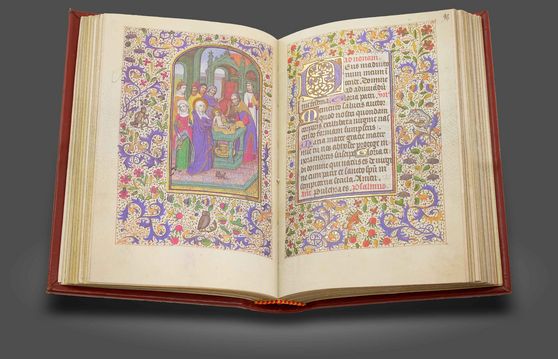 Ad nonam.
Deus in adiuto
rium meum in
tende. Domine
ad adiuuādū
me festina. Gloria patri.
Memento salutis auctor
quod nostri quondam
corporis ex illibata virgine nas
cendo formam sumpseris.
Maria mater gratie mater
mie tu nos ab hoste protege in
hora mortis suscipe. Gloria ti
bi domine qui natus es de virgi
ne cum patre et sancto spū in
sempiterna secula. Amen.
Pulchra es. Psalmus.